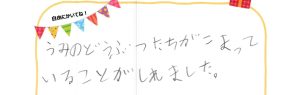 自由にかいてね!
うみのどうぶつたちがこまって
いることがしれました。